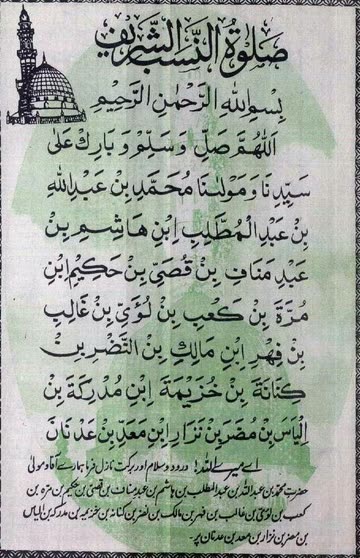 صَلٰوةُ النَّسَبِ الشَّرِیْف
بِسْمِ اللهِ الرَّحْمٰنِ الرَّحِیْمِ
اَللّٰهُمَّ صَلِّ وَسَلِّمْ وَبَارِكْ عَلٰی
سَیِّدِنَا وَمَوْلٰنَا مُحَمَّدِ بْنِ عَبْدِ اللهِ
بْنِ عَبْدِ الْمُطَّلِبِ اِبْنِ هَاشِمِ بْنِ
عَبْدِ مَنَافِ بْنِ قُصَیِّ بْنِ حَكِیْمِ ابْنِ
مُرَّةَ بْنِ كَعْبِ بْنِ لُؤَیِّ بْنِ غَالِبِ
بْنِ فِهْرِ ابْنِ مَالِكِ بْنِ النَّضْرِ بْنِ
كِنَانَةَ بْنِ خُزَیْمَةَ ابْنِ مُدْرِكَةَ بْنِ
اِلْیَاسَ بْنِ مُضَرَ بْنِ نَزَارِ ابْنِ مَعَدِّ بْنِ عَدْنَانَ
اے میرے اللہ! درود و سلام اور برکت نازل فرما ہمارے آقا و مولیٰ
حضرت محمد بن عبداللہ بن عبدالمطلب بن ہاشم بن عبد مناف بن قصی بن حکیم بن مرہ بن
کعب بن لوئی بن غالب بن فہر بن مالک بن نضر بن کنانہ بن خزیمہ بن مدرکہ بن الیاس
بن مضر بن نزار بن معد بن عدنان پر۔